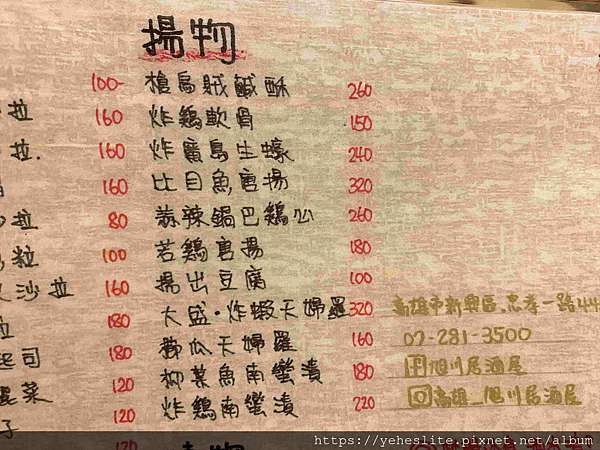 揚物
100- 槍烏賊鹹酥 260
拉 160 炸鶏軟骨 150
拉. 160 炸廣島生蠔 240
160 比目魚唐揚 320
拉 80 蒜辣鍋巴鶏公 260
粒 100 若鶏唐揚 180
沙拉 160 揚出豆腐 100
拉 180 大盛・炸蝦天婦羅 320 高雄市新興區.忠孝一路44
起司 180 櫛瓜天婦羅 160 07-281-3500
菜 120 柳葉魚南蠻漬 180 旭川居酒屋
子 120 炸鶏南蠻漬 220 高雄_旭川居酒屋
120
https://yeheslite.pixnet.net/album